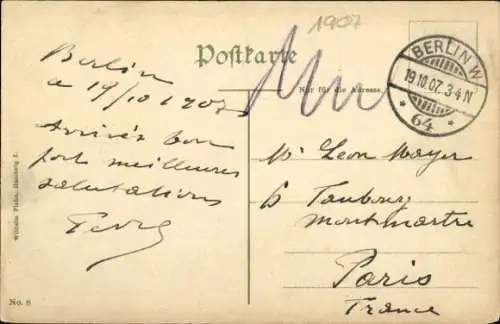 1907
Postkarte
Nur für die Adresse
BERLIN W.
19.10.07. 3-4 N
* 64 *
Berlin
19/10 1907
Arrivés bon
port meilleures
salutations
Mr Leon Mayer
6 Faubourg
Montmartre
Paris
France
Wilhelm
Hamburg
No. 8